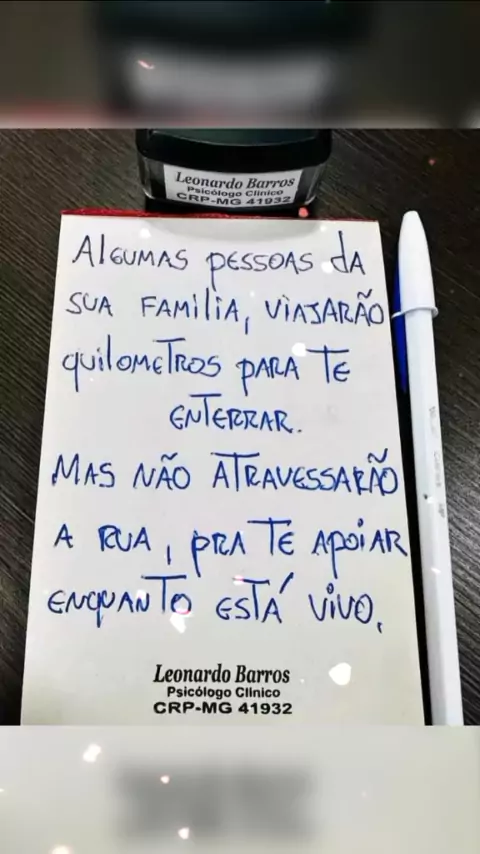 Leonardo Barros
Psicólogo Clínico
CRP-MG 41932
ALGUMAS PESSOAS DA
SUA FAMILIA, VIAJARÃO
QUILOMETROS PARA TE
ENTERRAR.
MAS NÃO ATRAVESSARÃO
A RUA, PRA TE APOIAR
ENQUANTO ESTÁ VIVO.
Leonardo Barros
Psicólogo Clínico
CRP-MG 41932